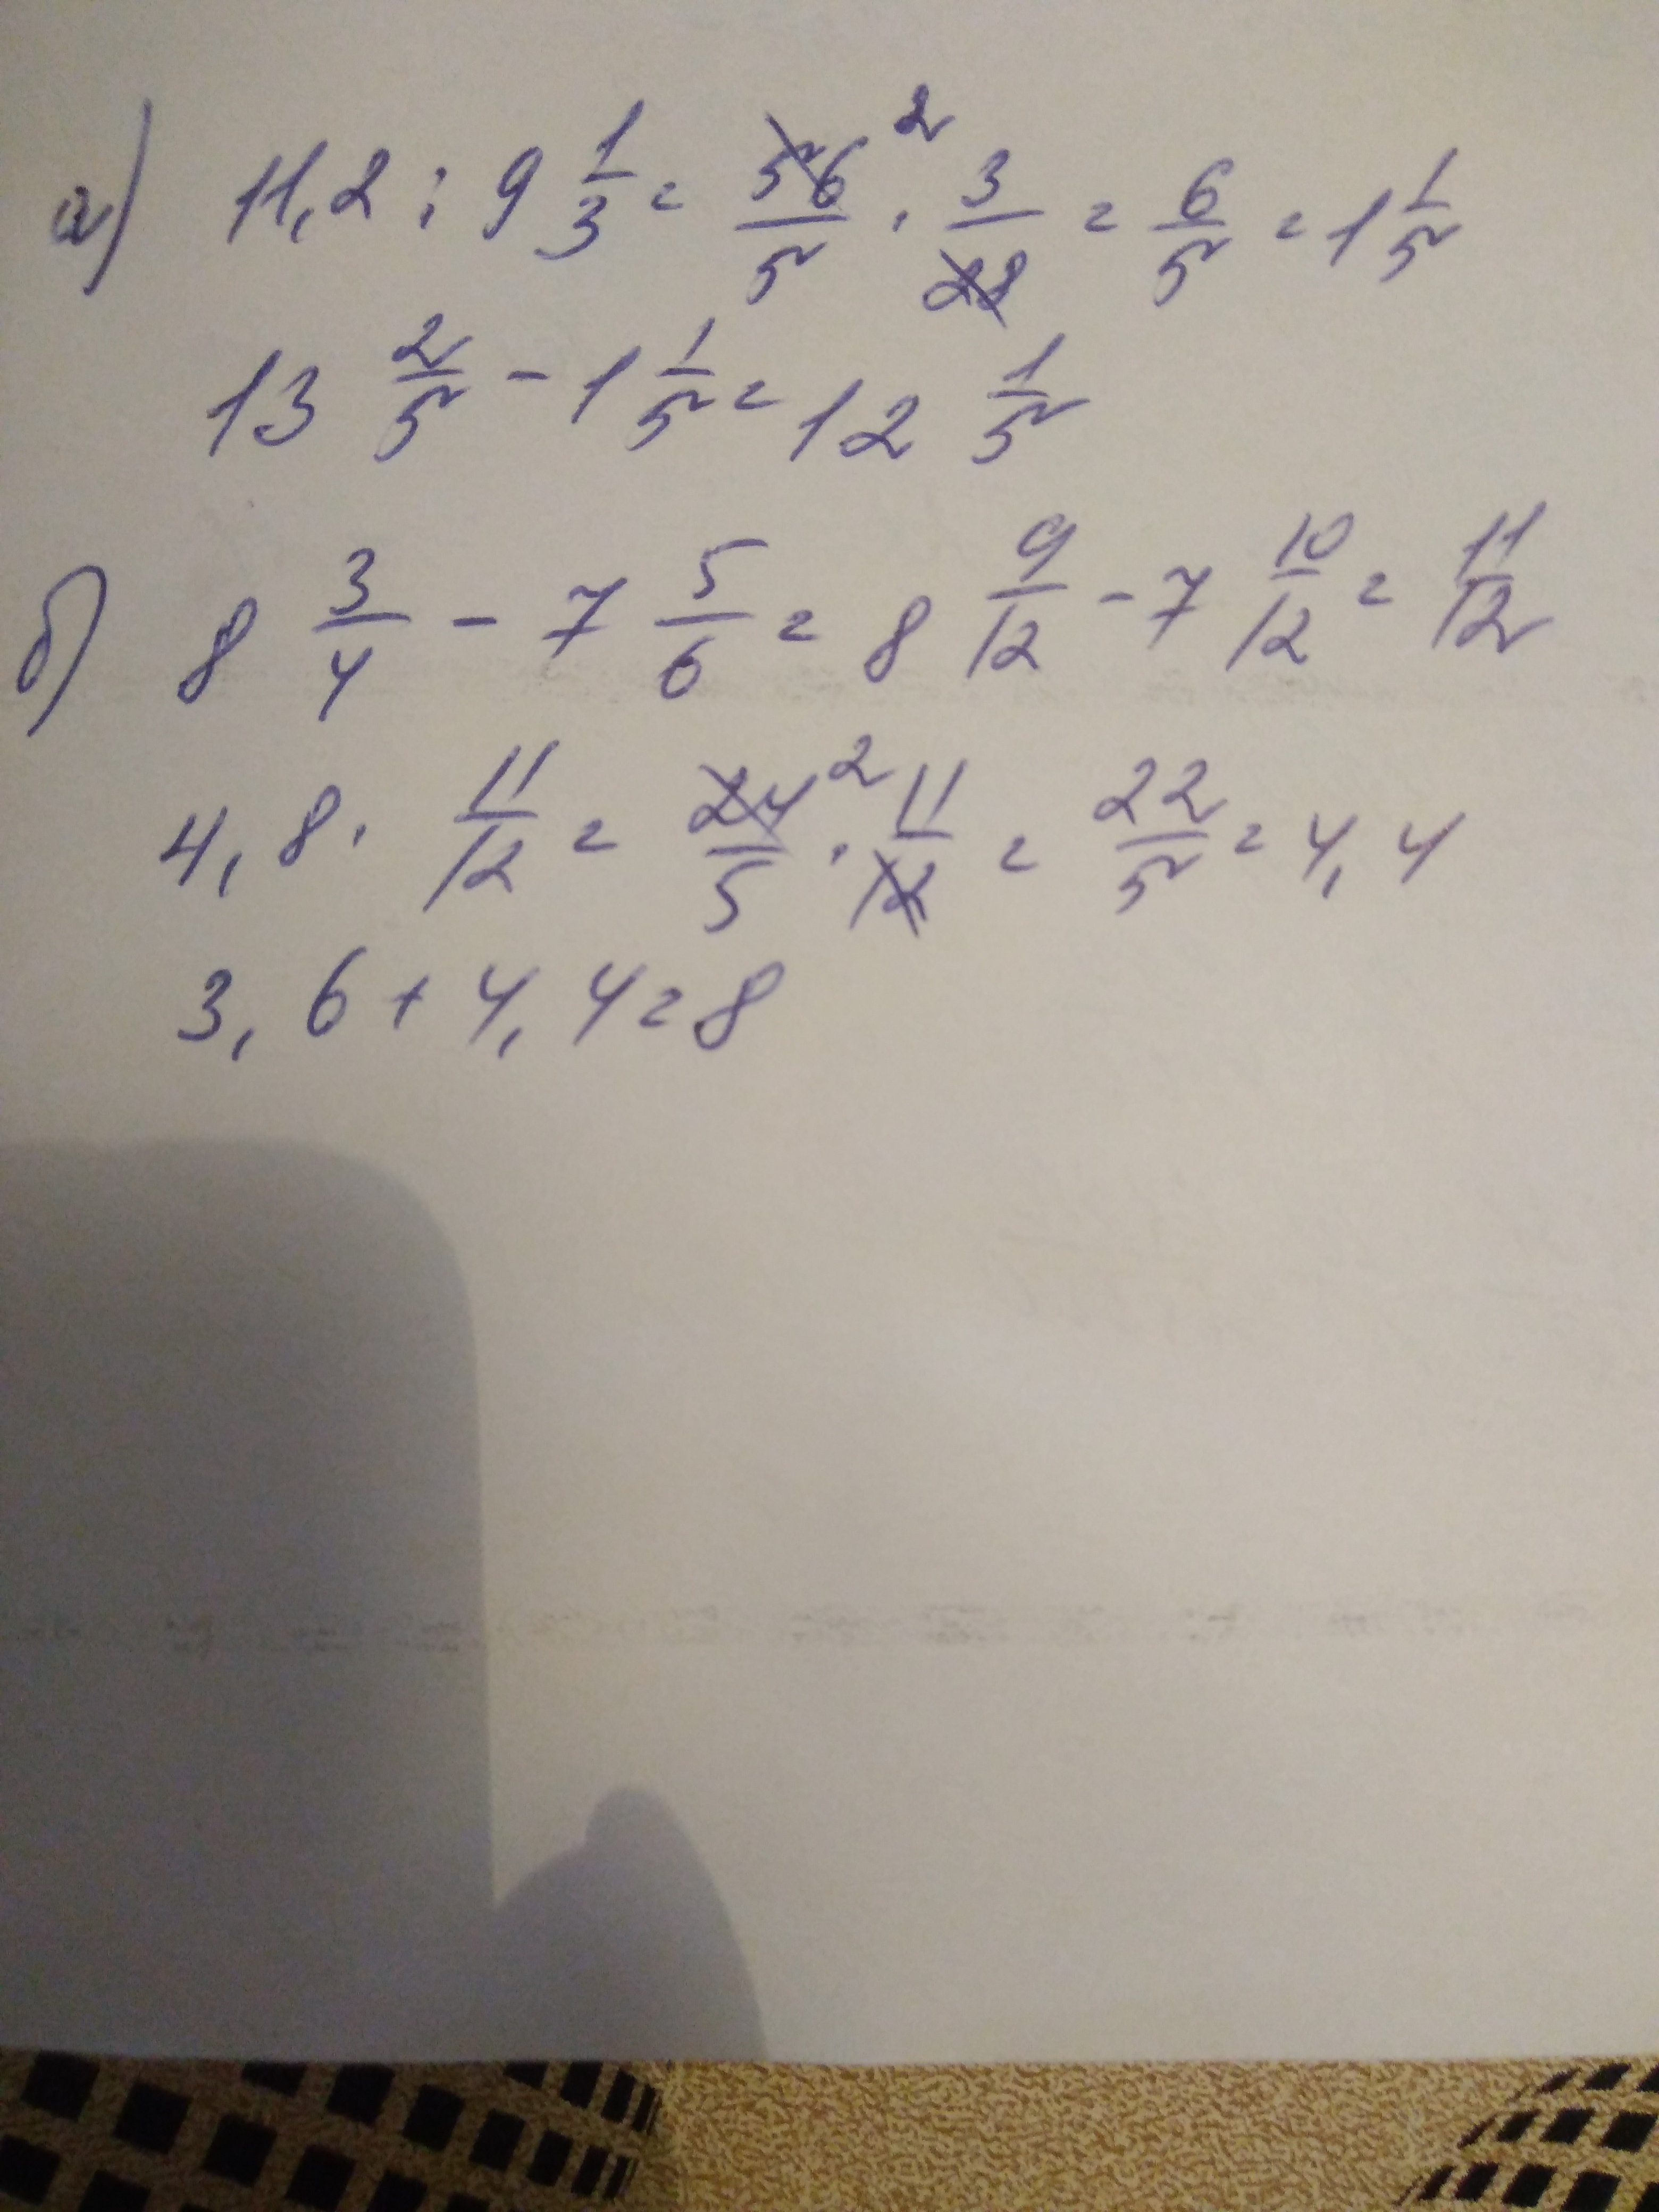 а) 11,2 : 9 1/3 = 56/5 ² · 3/28 = 6/5 = 1 1/5
13 2/5 - 1 1/5 = 12 1/5
б) 8 3/4 - 7 5/6 = 8 9/12 - 7 10/12 = 11/12
4,8 · 11/12 = 24/5 ² · 11/12 = 22/5 = 4,4
3,6 + 4,4 = 8